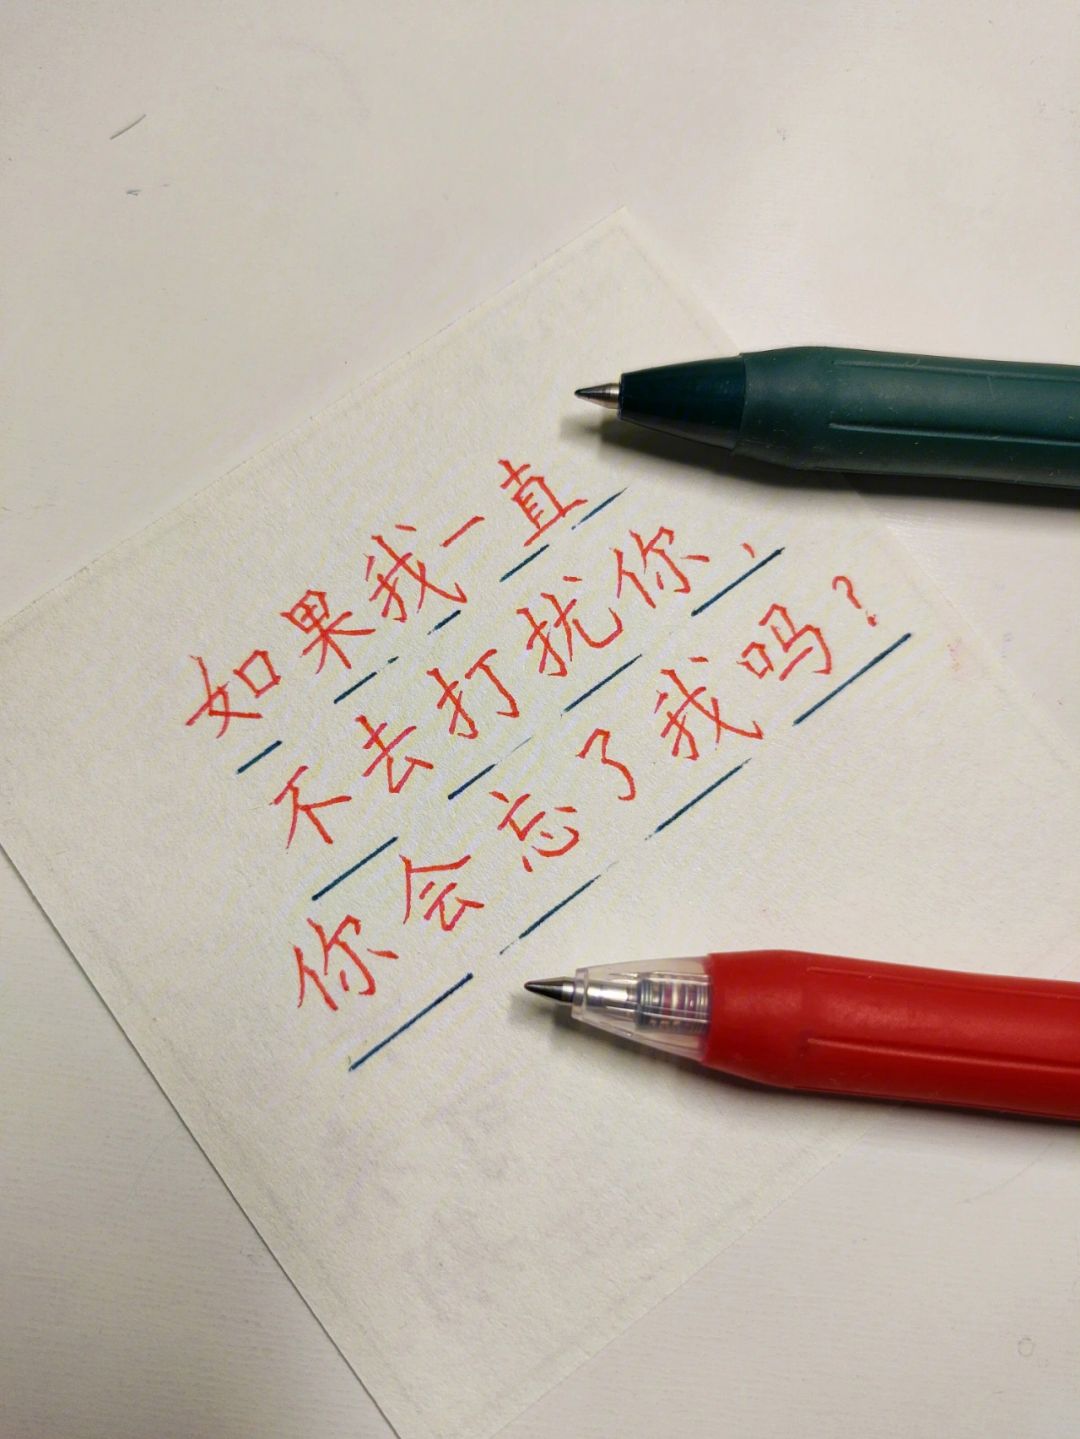 如果我一直
不去打扰你、
你会忘了我吗?